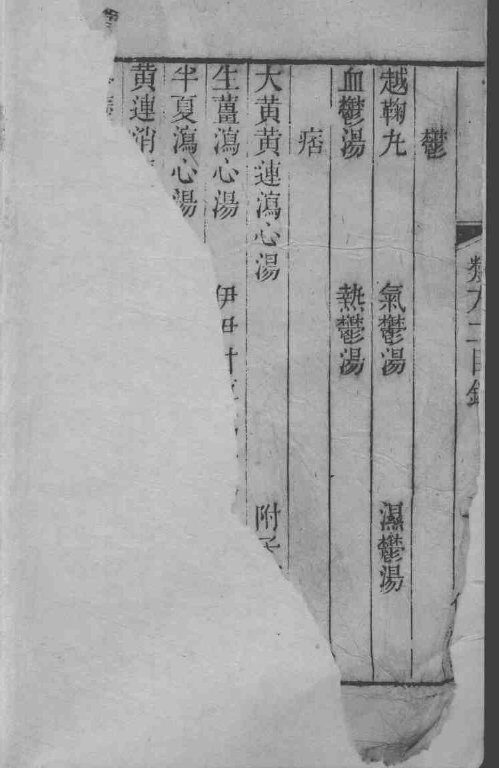 鬱
越鞠九　氣鬱湯　濕鬱湯
血鬱湯　熱鬱湯
痞
大黃黃連瀉心湯　附子
生薑瀉心湯　伊尹
半夏瀉心湯
黃連消